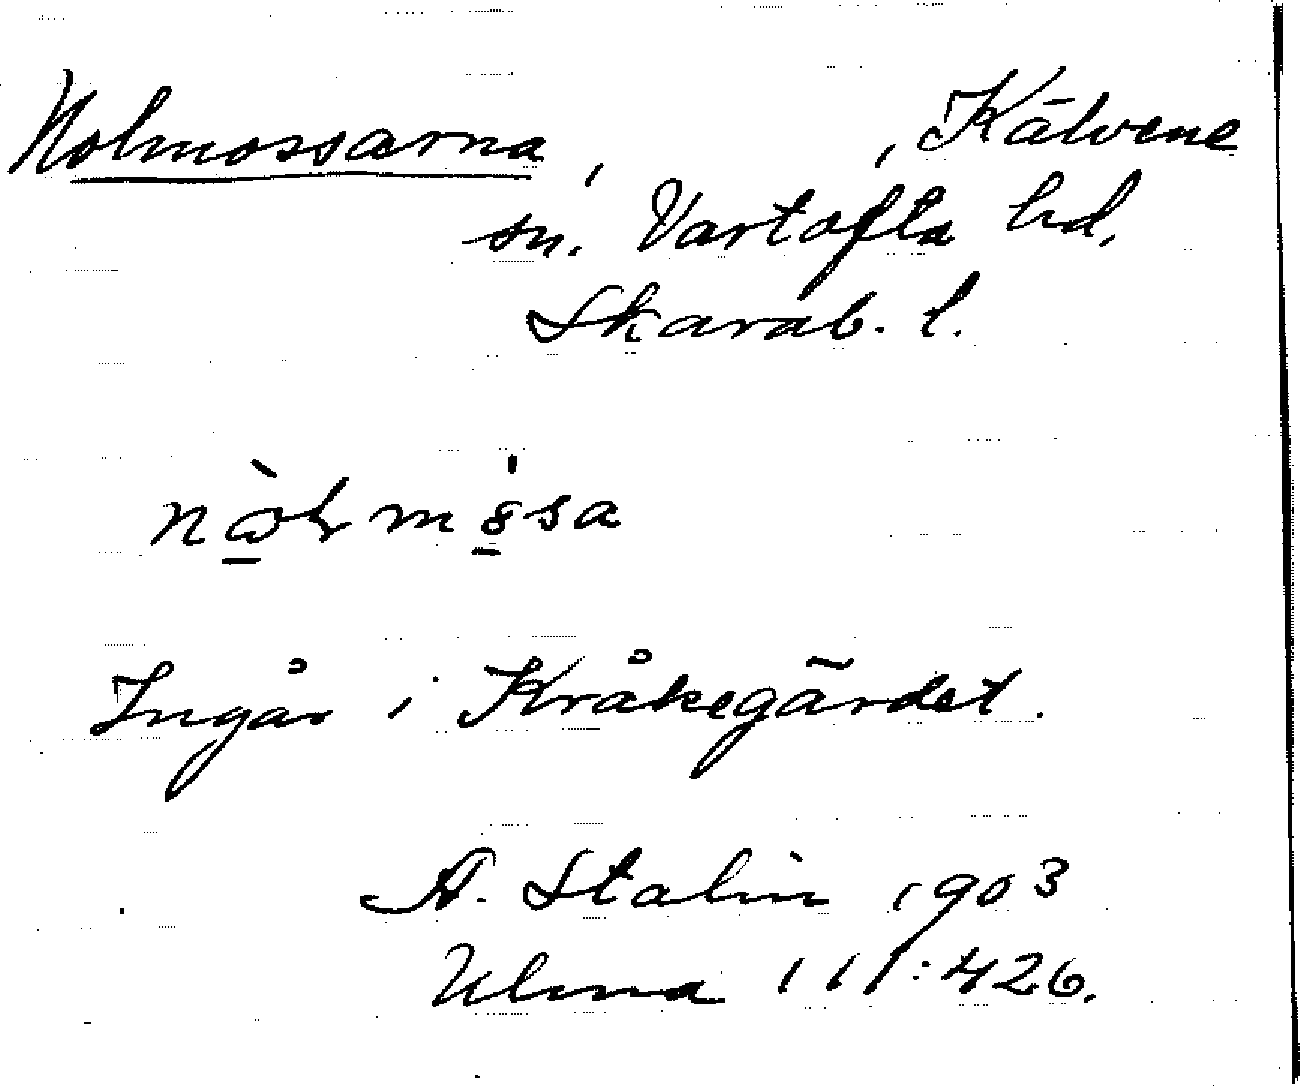 Nolmossarna, , Kälvene
sn. Vartofta hd.
Skarab. l.
Ingår i Kråkegärdet.
A. Stalin 1903
Ulma 111:426.